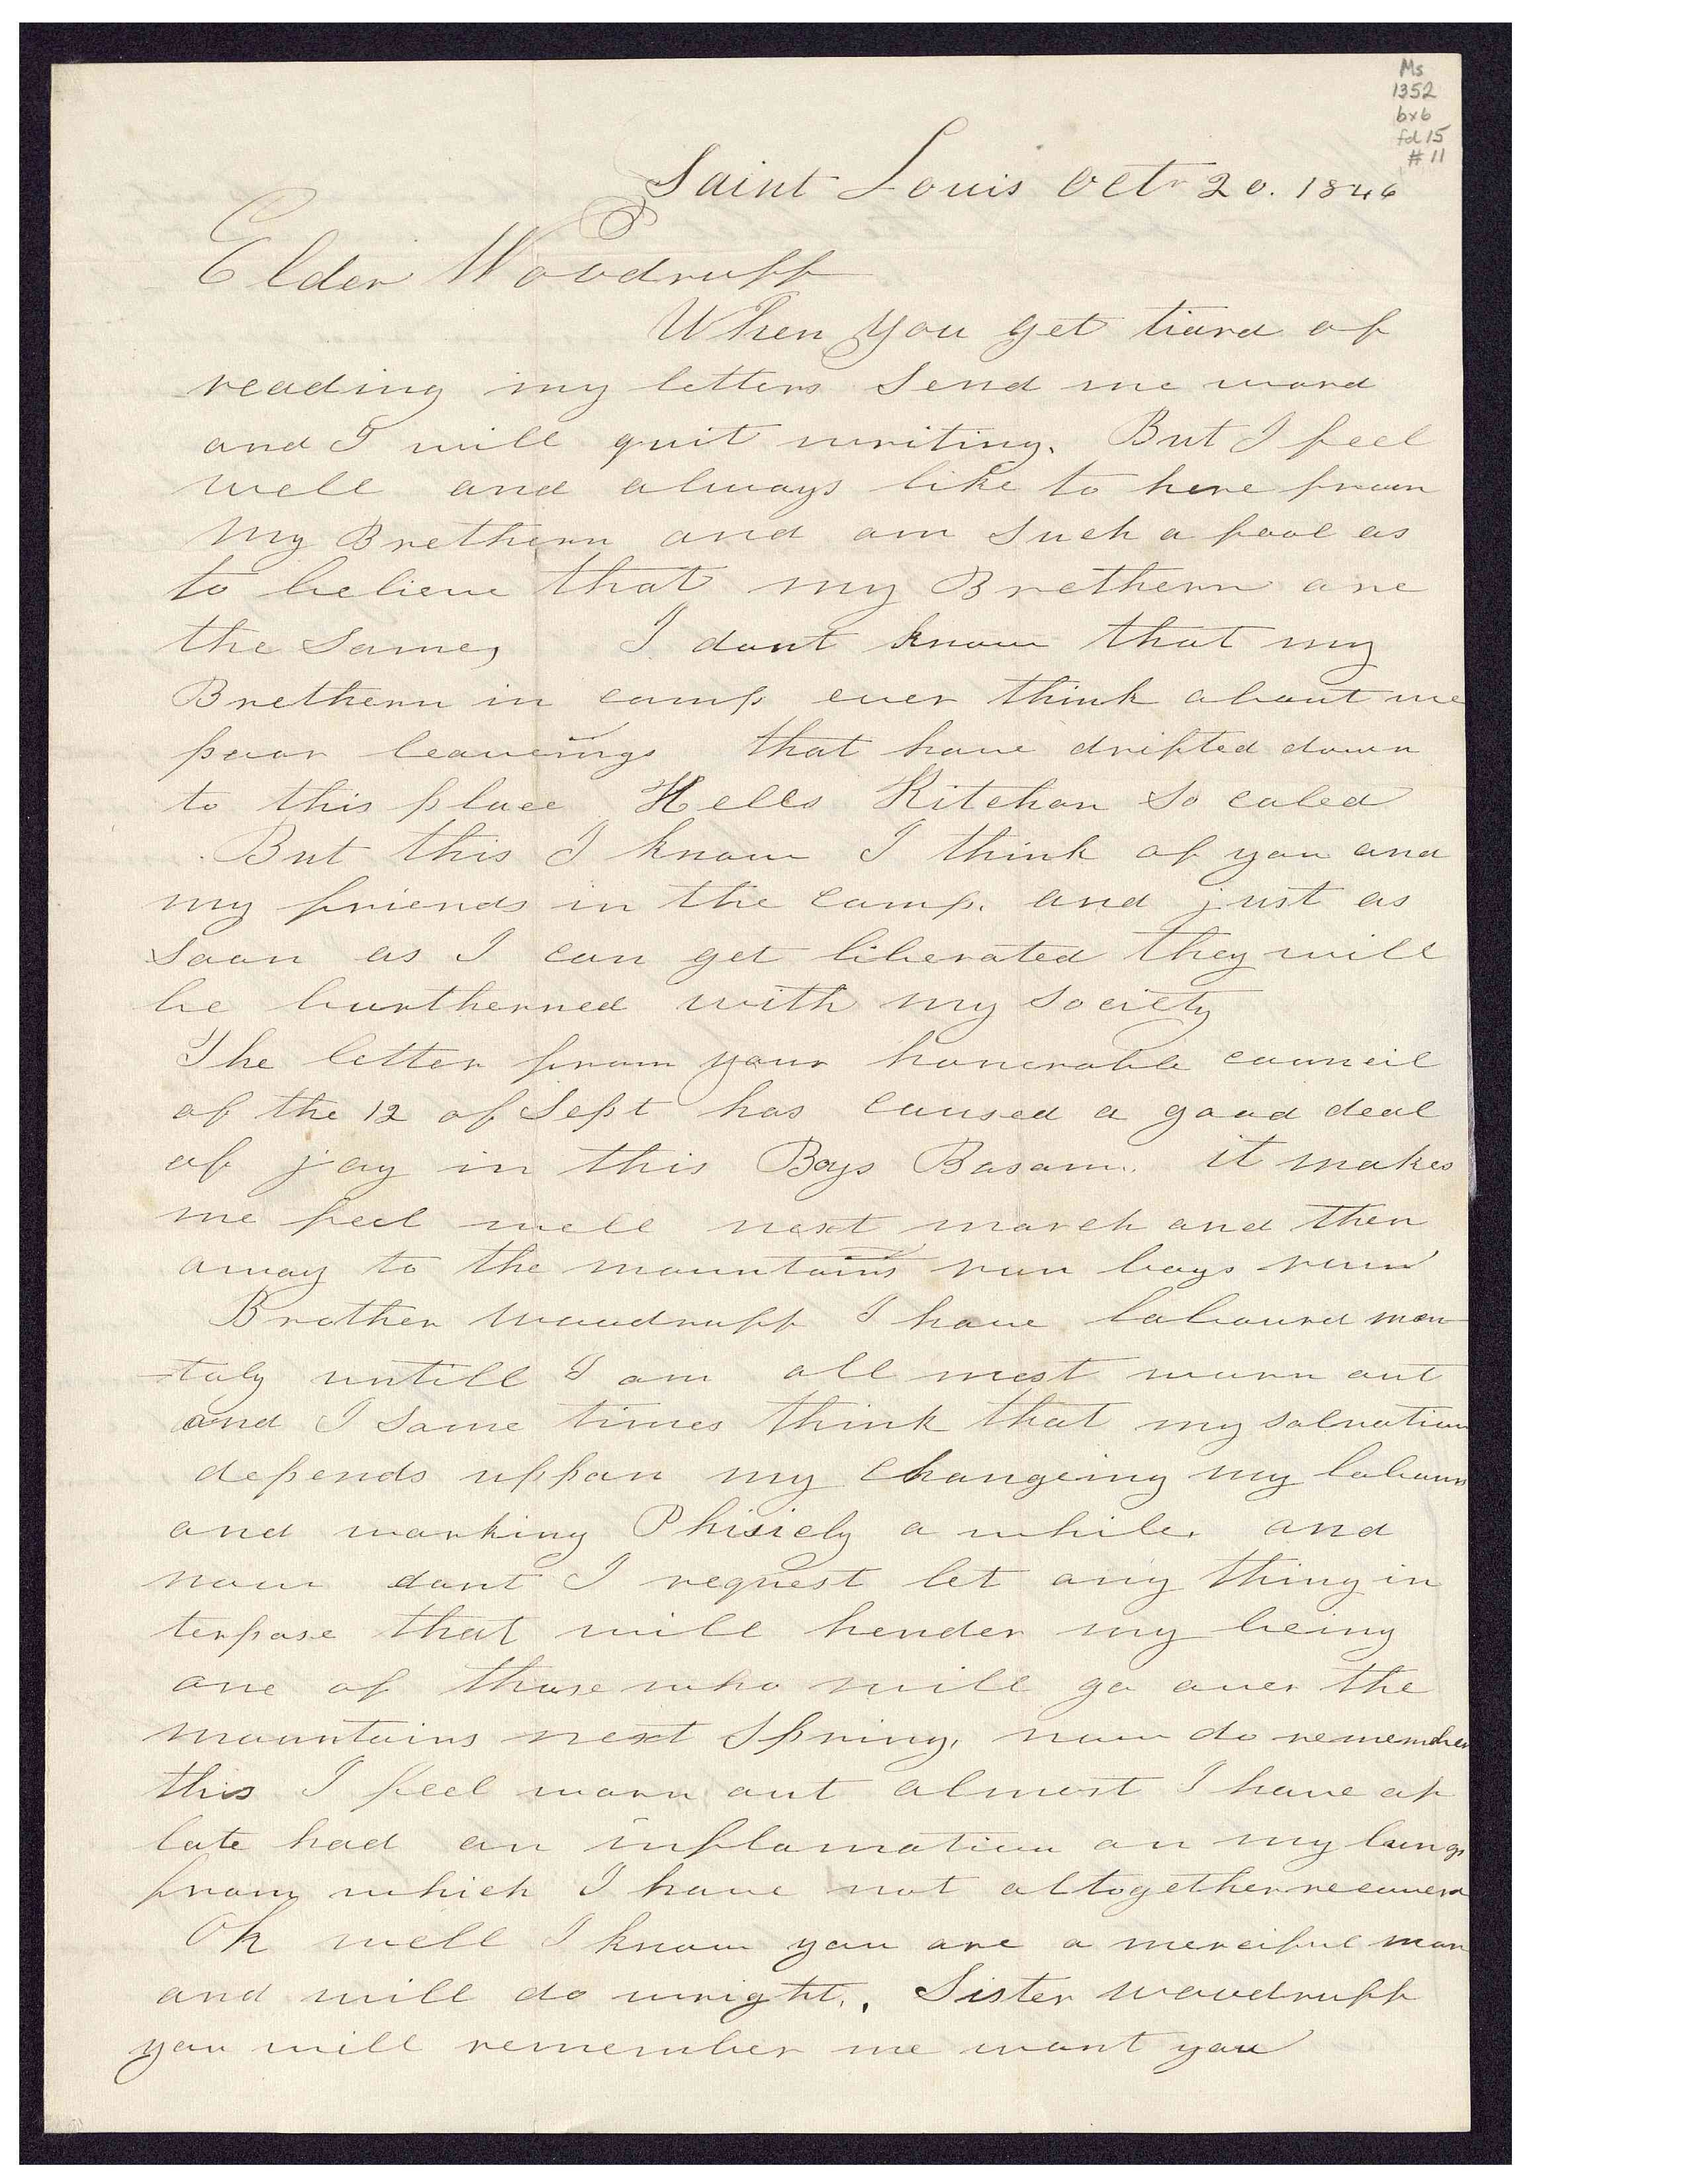 Ms
1352
bx6
fd 15
#11
Saint Louis Octr 20. 1846
Elder Woodruff
When you get tiard of
reading my letters Send me word
and I will quit wwriting. But I feel
well and always like to here from
my Brethern and am Such a fool as
to believe that my Brethern are
the same, I dont know that my
Brethern in camp ever think about we
poor leaveings that have drifted down
to this place Hells Kitchan So caled
But this I know I think of you and
my friends in the camp. and just as
soon as I can get liberated they will
be burtherned with my Society
The letter from your honorable council
of the 12 of Sept has caused a good deal
of joy in this Boys Bosom. it makes
me feel well next march and then
away to the mountains run boys run
Brother Woodruff I have laboured men
-taly untill I am all most worn out
and I Some times think that my salvation
depends uppon my changeing my labours
and working Phisicly a while. and
now dont I request let any thing in
terpose that will hender my being
one of those who will go over the
mountains next Spring, now do remember
this I feel worn out almost I have of
late had an inflamation on my lungs
from which I have not altogether recoverd
Oh well I know you are a merciful man
and will do wright., Sister Woodruff
you will remember me wont you